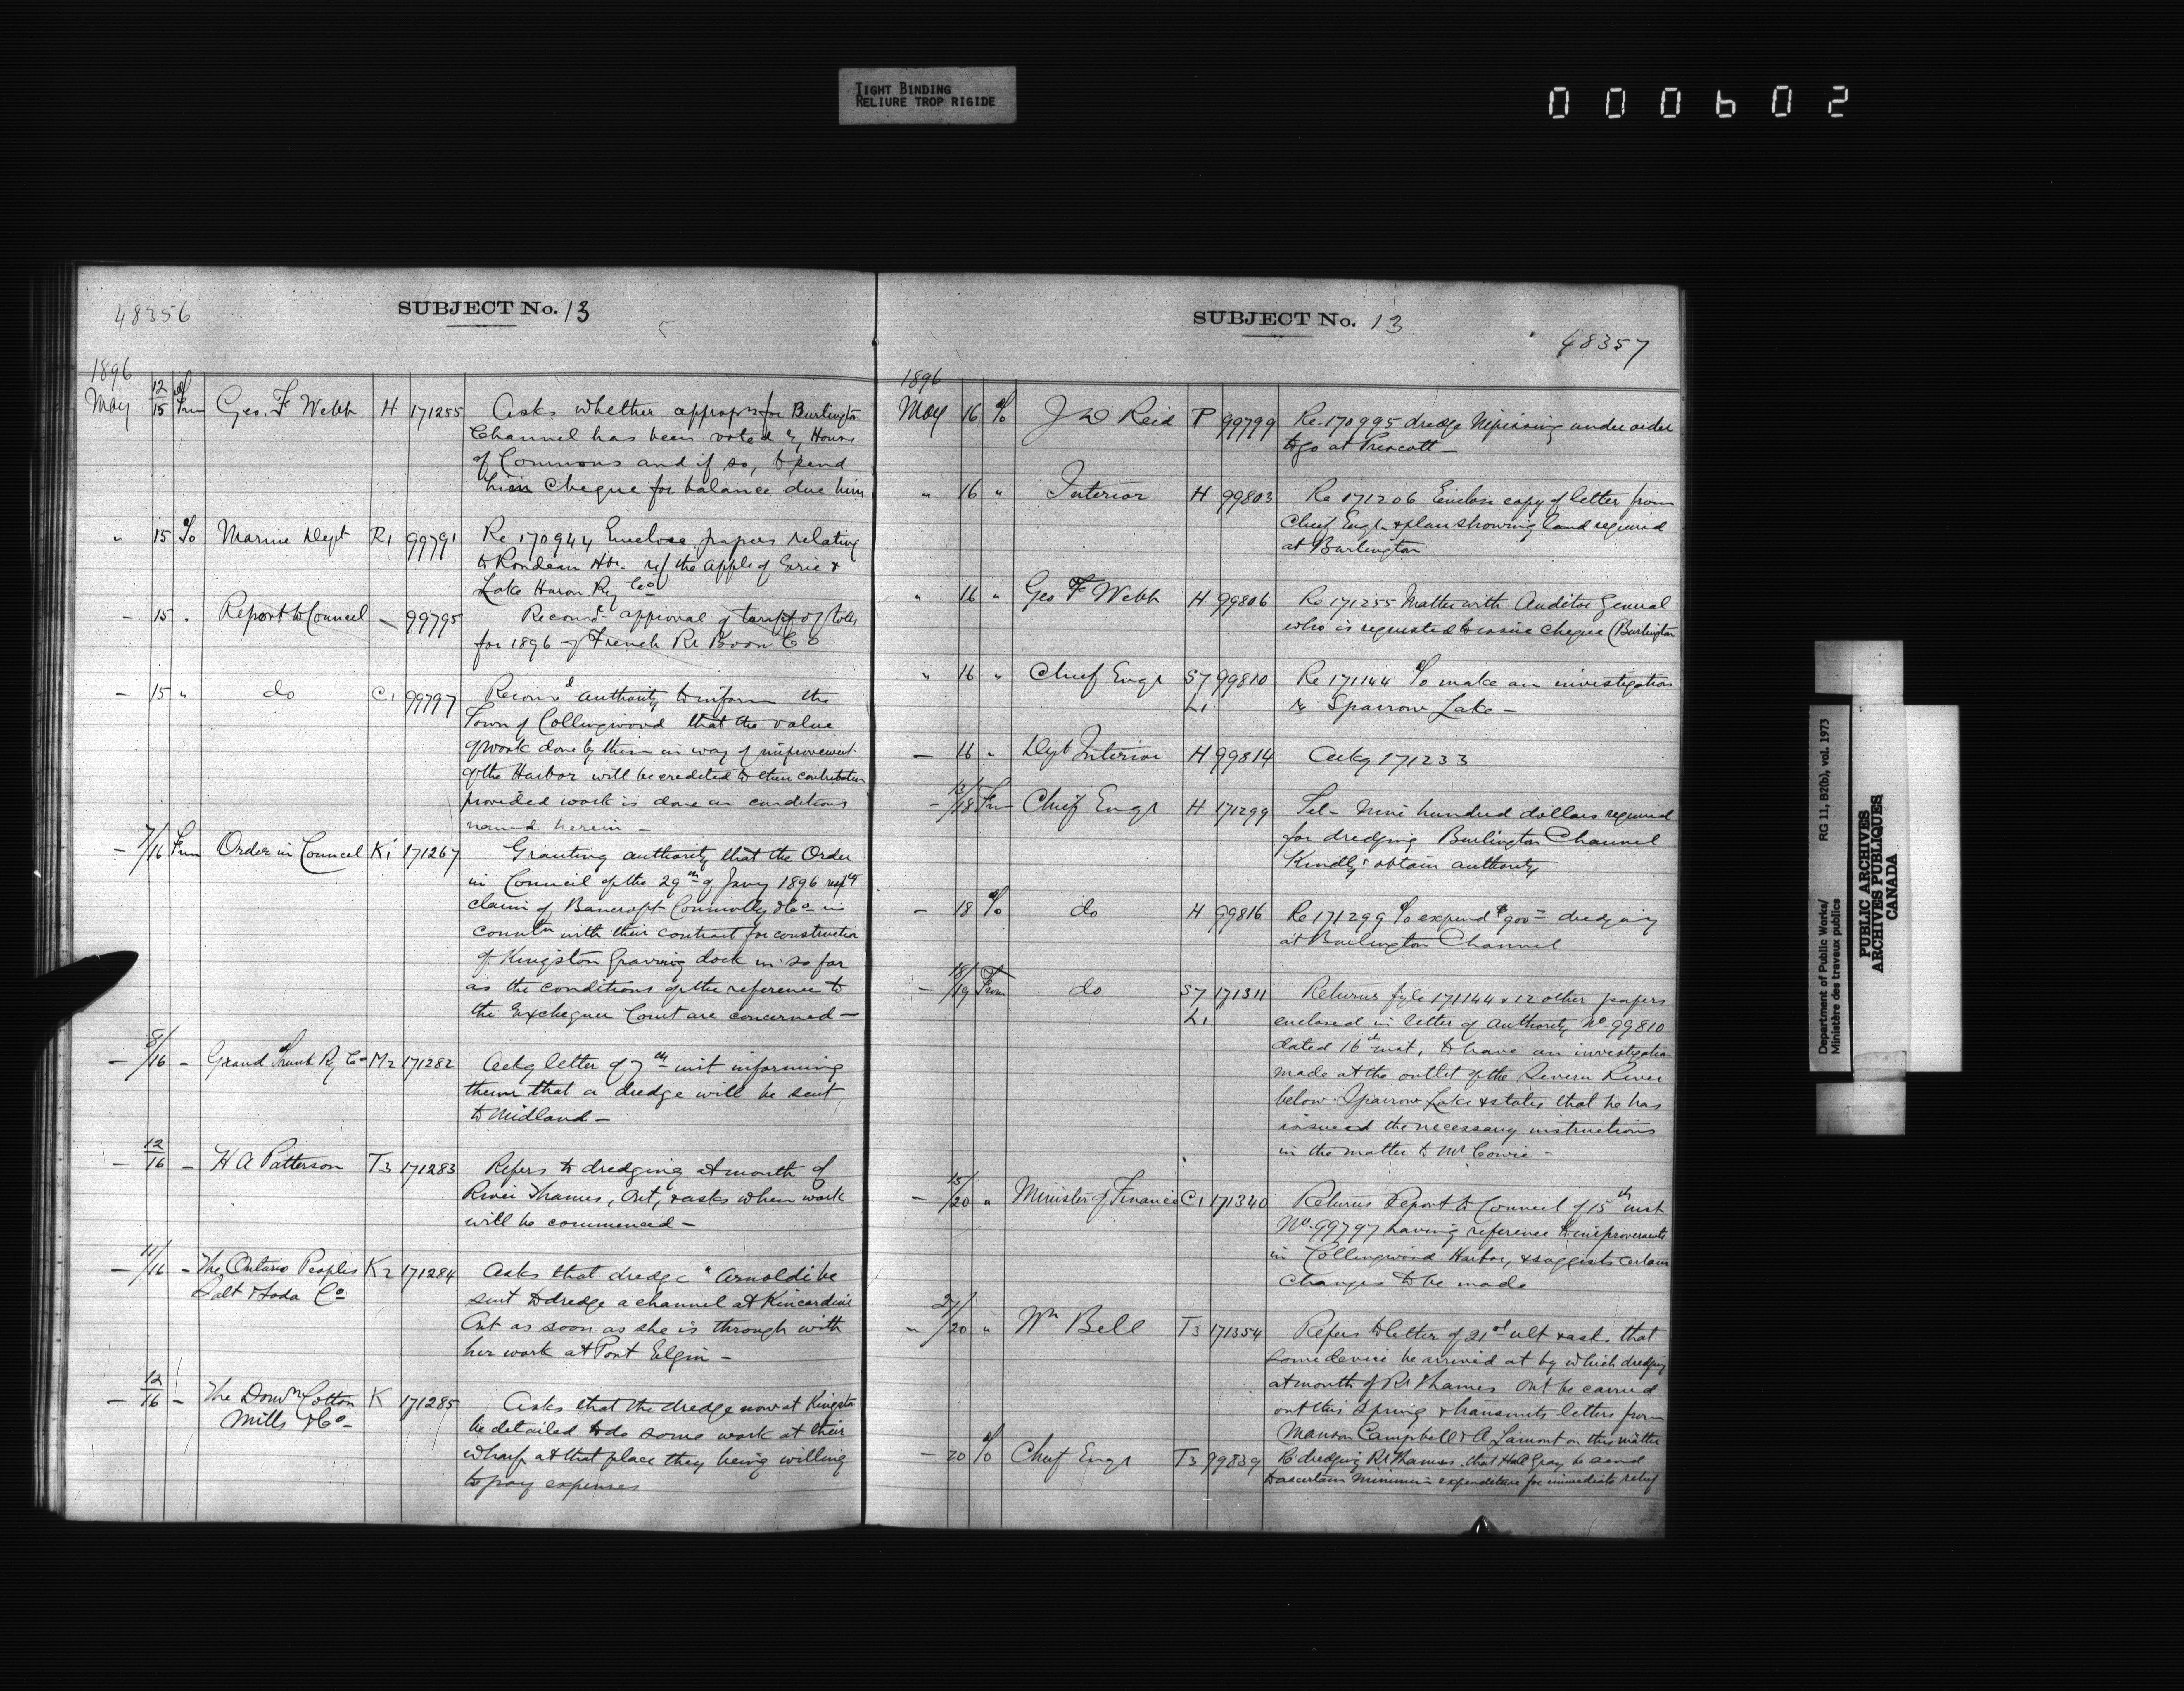 TIGHT BINDING
RELIURE TROP RIGIDE
000602
48356
SUBJECT No. 13
1896
May 12/15 Frm Geo. F Webb H 171255 Asks whether approprn for Burlington
Channel has been voted by House
of Commons and if so, to send
him Cheque for balance due him
" 15 To Marine Dept R1 99791 Re 170944 Enclose papers relating
to Rondeau Hbr. r/ the apple of Erie &
Lake Huron Ry Co
- 15 " Report to Council - 99795 Recomd approval of tariff of tolls
for 1896 of French Rr Boom Co
- 15 " do C1 99797 Recomd authority to inform the
Town of Collingwood that the value
of work done by them in way of improvement
of the Harbor will be credited to their contribution
provided work is done on conditions
named herein -
- 7/16 Frm Order in Council K1 171267 Granting authority that the Order
in Council of the 29th of Jany 1896 respg
claim of Bancroft Connolly & Co in
connctn with their contract for construction
of Kingston Graving dock in so far
as the conditions of the reference to
the Exchequer Court are concerned -
- 8/16 - Grand Trunk Ry Co M2 171282 Ackg letter of 7th inst informing
them that a dredge will be sent
to Midland -
- 12/16 - H A Patterson T3 171283 Refers to dredging at mouth of
River Thames, Ont, & asks when work
will be commenced -
- 11/16 - The Ontario Peoples K2 171284 Asks that dredge "Arnoldi be
Salt & Soda Co sent to dredge a channel at Kincardine
Ont as soon as she is through with
her work at Port Elgin -
- 12/16 - The Domn Cotton K 171285 Asks that the dredge now at Kingston
Mills & Co - be detailed to do some work at their
wharf at that place they being willing
to pay expenses
SUBJECT No. 13
48357
1896
May 16 To J D Reid P 99799 Re 170995 dredge Nipissing under order
to go at Prescott -
" 16 " Interior H 99803 Re 171206 Enclose copy of letter from
Chief Engr & plan showing land required
at Burlington
" 16 " Geo F Webb H 99806 Re 171255 Matter with Auditor General
who is requested to issue cheque (Burlington
" 16 " Chief Engr S7 99810 Re 171144 To make an investigation
L1 re Sparrow Lake -
- 16 " Dept Interior H 99814 Ackg 171233
- 13/18 Frm Chief Engr H 171299 Tel - Nine hundred dollars required
for dredging Burlington Channel
Kindly obtain authority
- 18 To do H 99816 Re 171299 To expend $900 - dredging
at Burlington Channel
- 18/19 From do S7 171311 Returns fyle 171144 & 12 other papers
L1 enclosed in letter of authority No 99810
dated 16th inst, to have an investigation
made at the outlet of the Severn River
below Sparrow Lake & states that he has
issued the necessary instructions
in the matter to Mr Cowie -
- 15/20 " Minister of Finance C1 171340 Returns Report to Council of 15th inst
No 99797 having reference to improvements
in Collingwood Harbor, & suggests certain
changes to be made
" 27/20 " Wm Bell T3 171354 Refers to letter of 21st ult & asks that
some device be arrived at by which dredging
at mouth of Rr Thames Ont be carried
out this spring & transmits letters from
Manson Campbell & A Lamont on this matter
- 20 To Chief Engr T3 99839 Re dredging Rr Thames, that Gray be send
to ascertain minimum expenditure for immediate relief
Department of Public Works/
Ministère des travaux publics
RG 11, B2(b), vol. 1973
PUBLIC ARCHIVES
ARCHIVES PUBLIQUES
CANADA